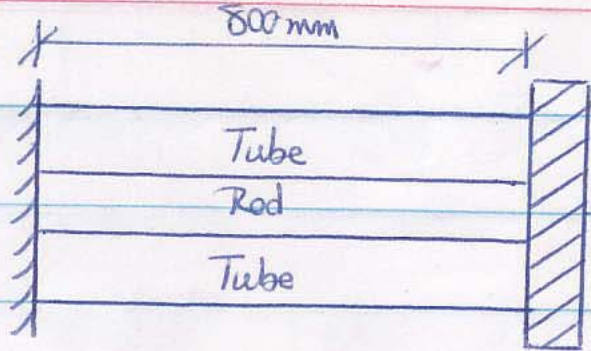 800 mm
Tube
Rod
Tube